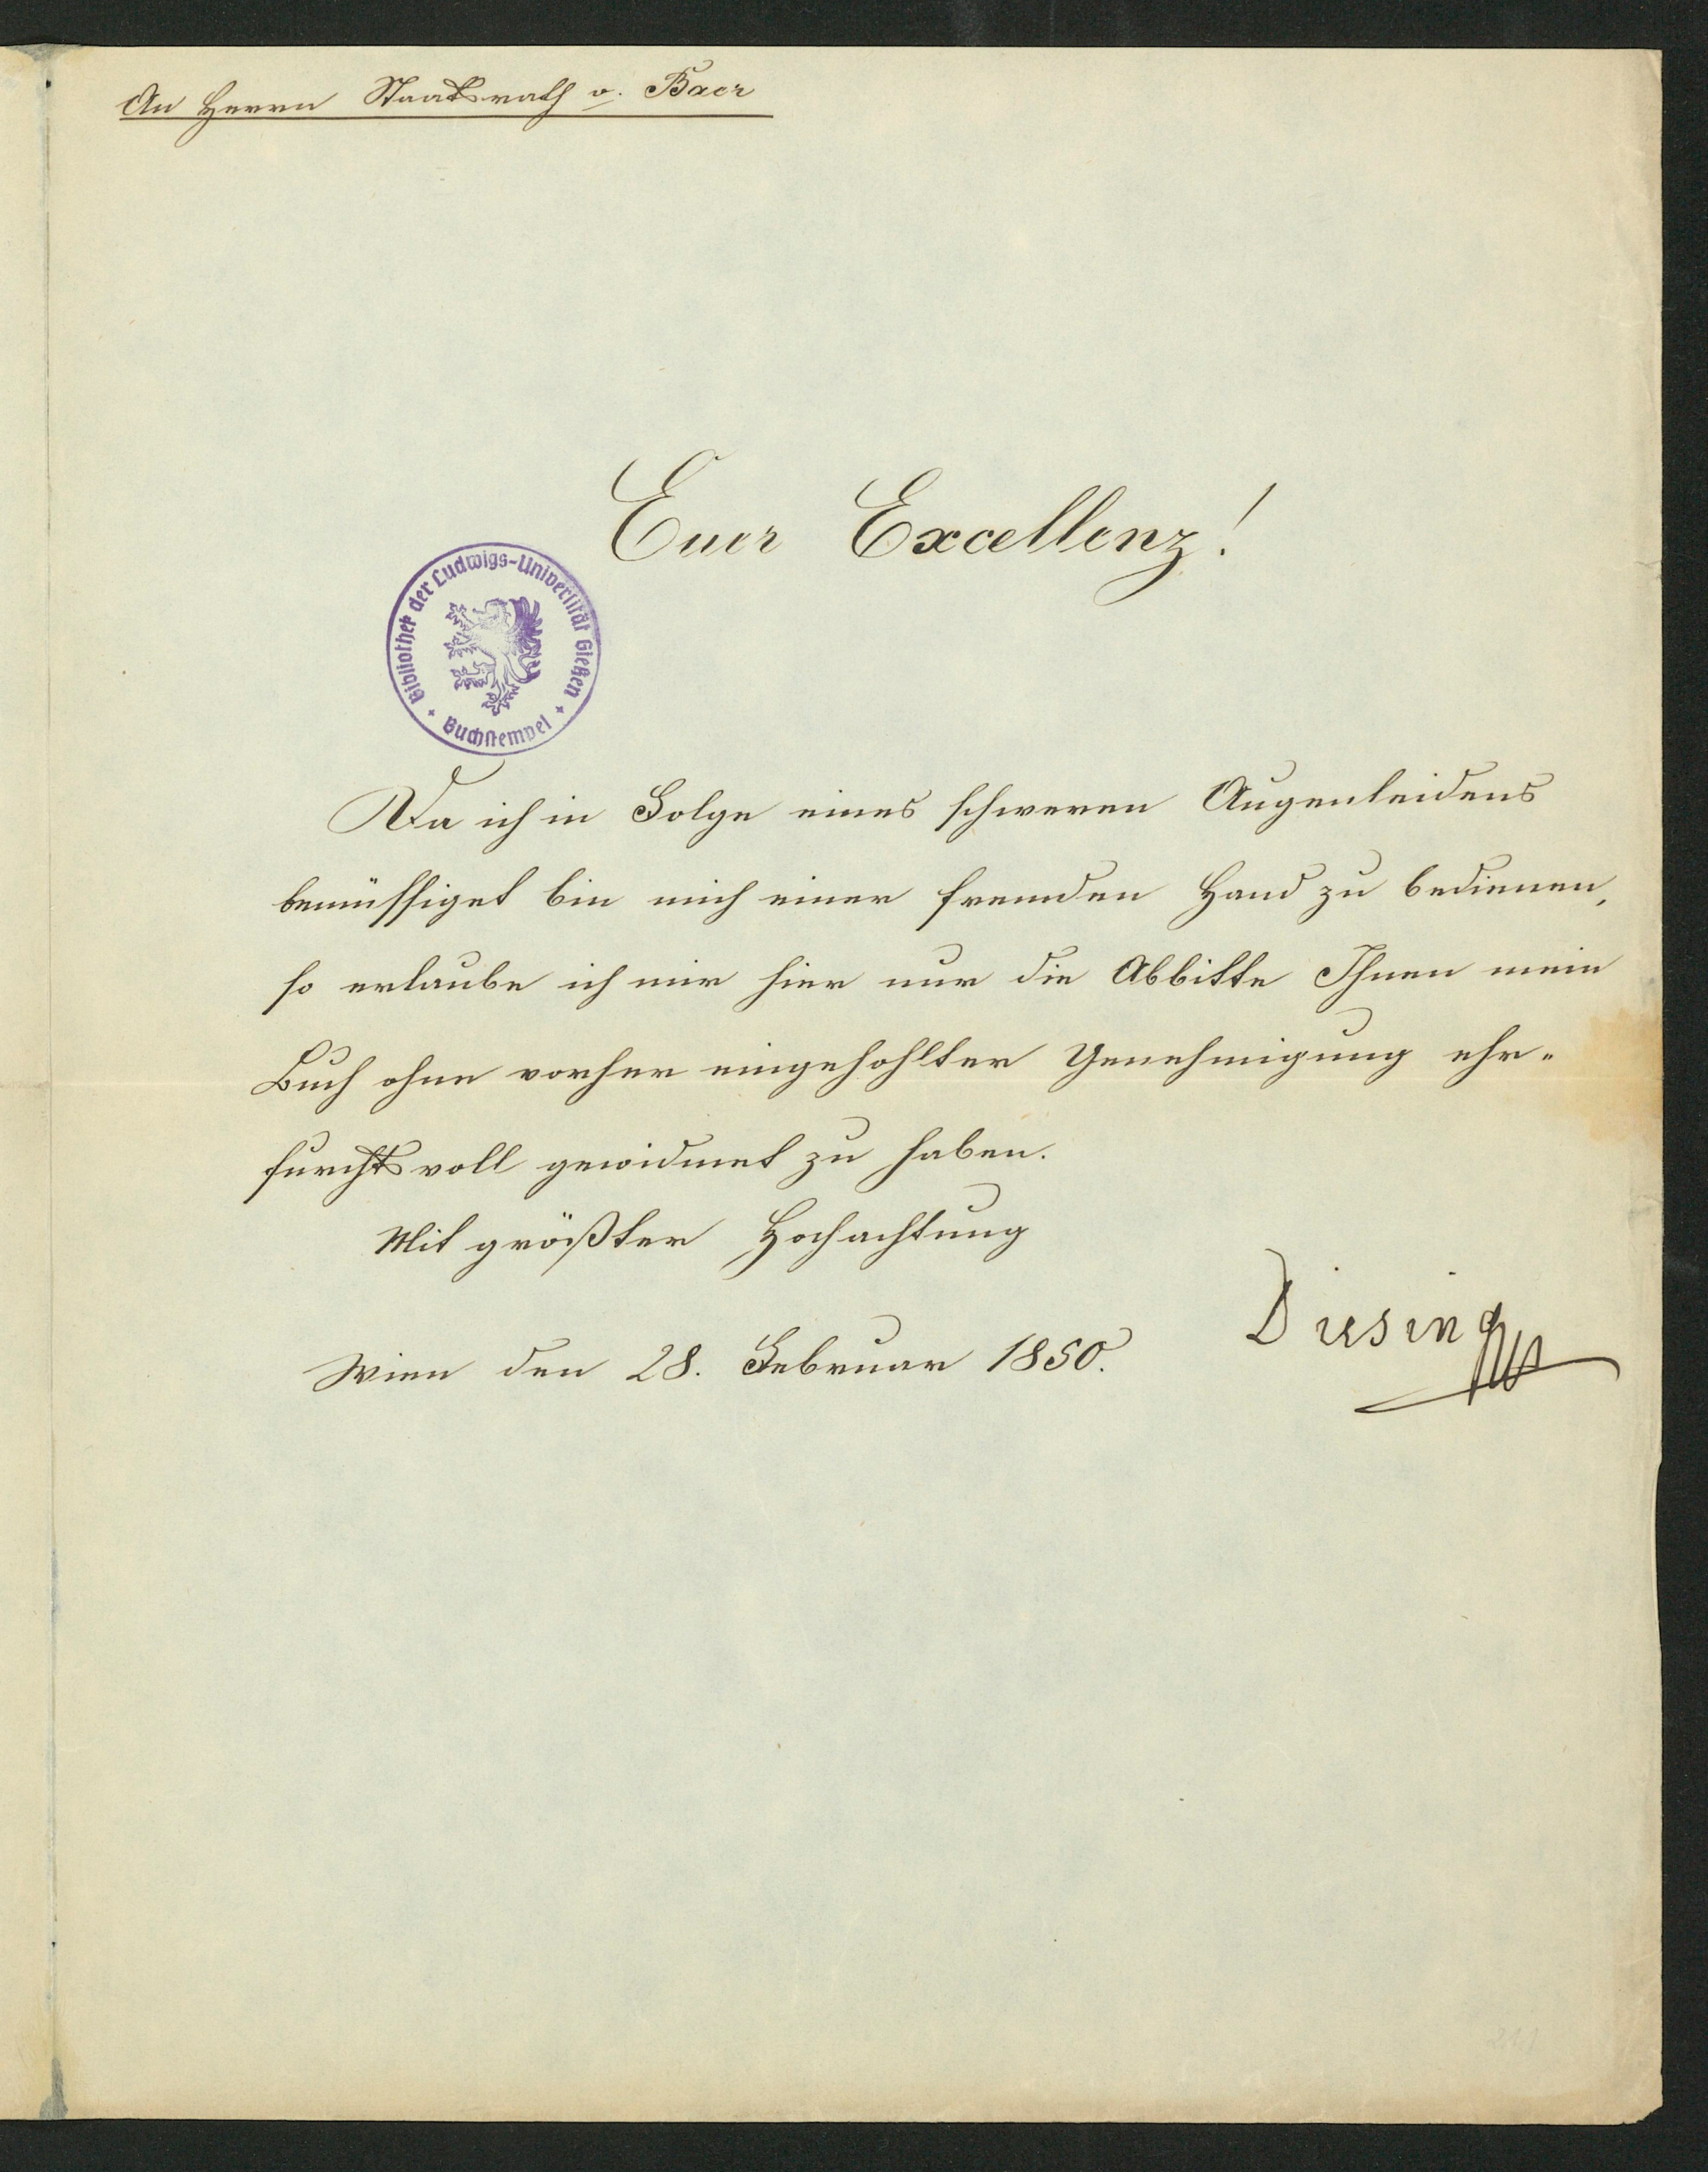 An Herrn Staatsrath v. Baer
Euer Excellenz!
Bibliothek der Ludwigs-Universität Gießen
Buchstempel
Da ich in Folge eines schweren Augenleidens
bemüssiget bin mich einer fremden Hand zu bedienen,
so erlaube ich mir hier nur die Abbitte Ihnen mein
Buch ohne vorher eingehohlter Genehmigung ehr-
furchtsvoll gewidmet zu haben.
Mit größter Hochachtung
Diesing
Wien den 28. Februar 1850.